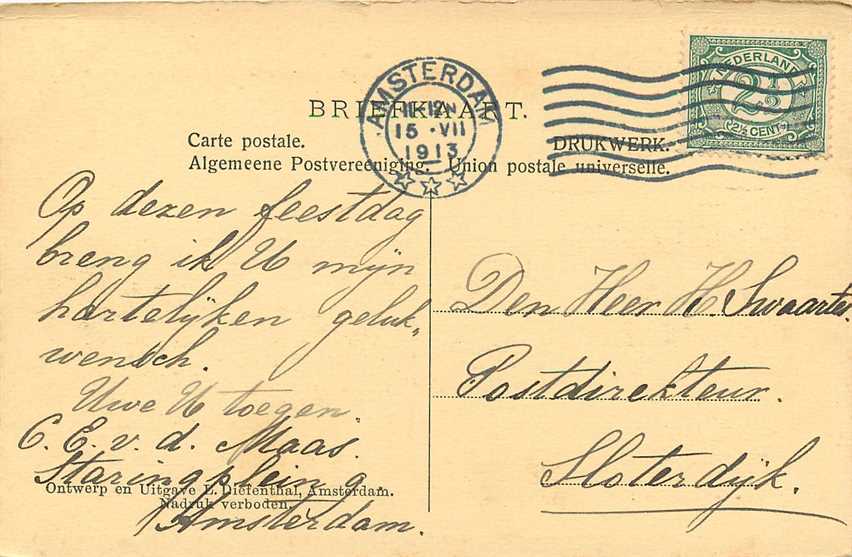 BRIEFKAART.
Carte postale.
Algemeene Postvereeniging. Union postale universelle.
DRUKWERK.
AMSTERDAM
11-12 N
15 · VII
1913
NEDERLAND
2½
(2½ CENT)
Op dezen feestdag
breng ik U mijn
hartelijken geluk„
wensch.
Uwe U toegen.
C. E. v. d. Maas.
Staringplein 9.
Amsterdam.
Ontwerp en Uitgave L. Diefenthal, Amsterdam.
Nadruk verboden.
Den Heer H. Swaarter
Postdirekteur.
Sloterdijk.